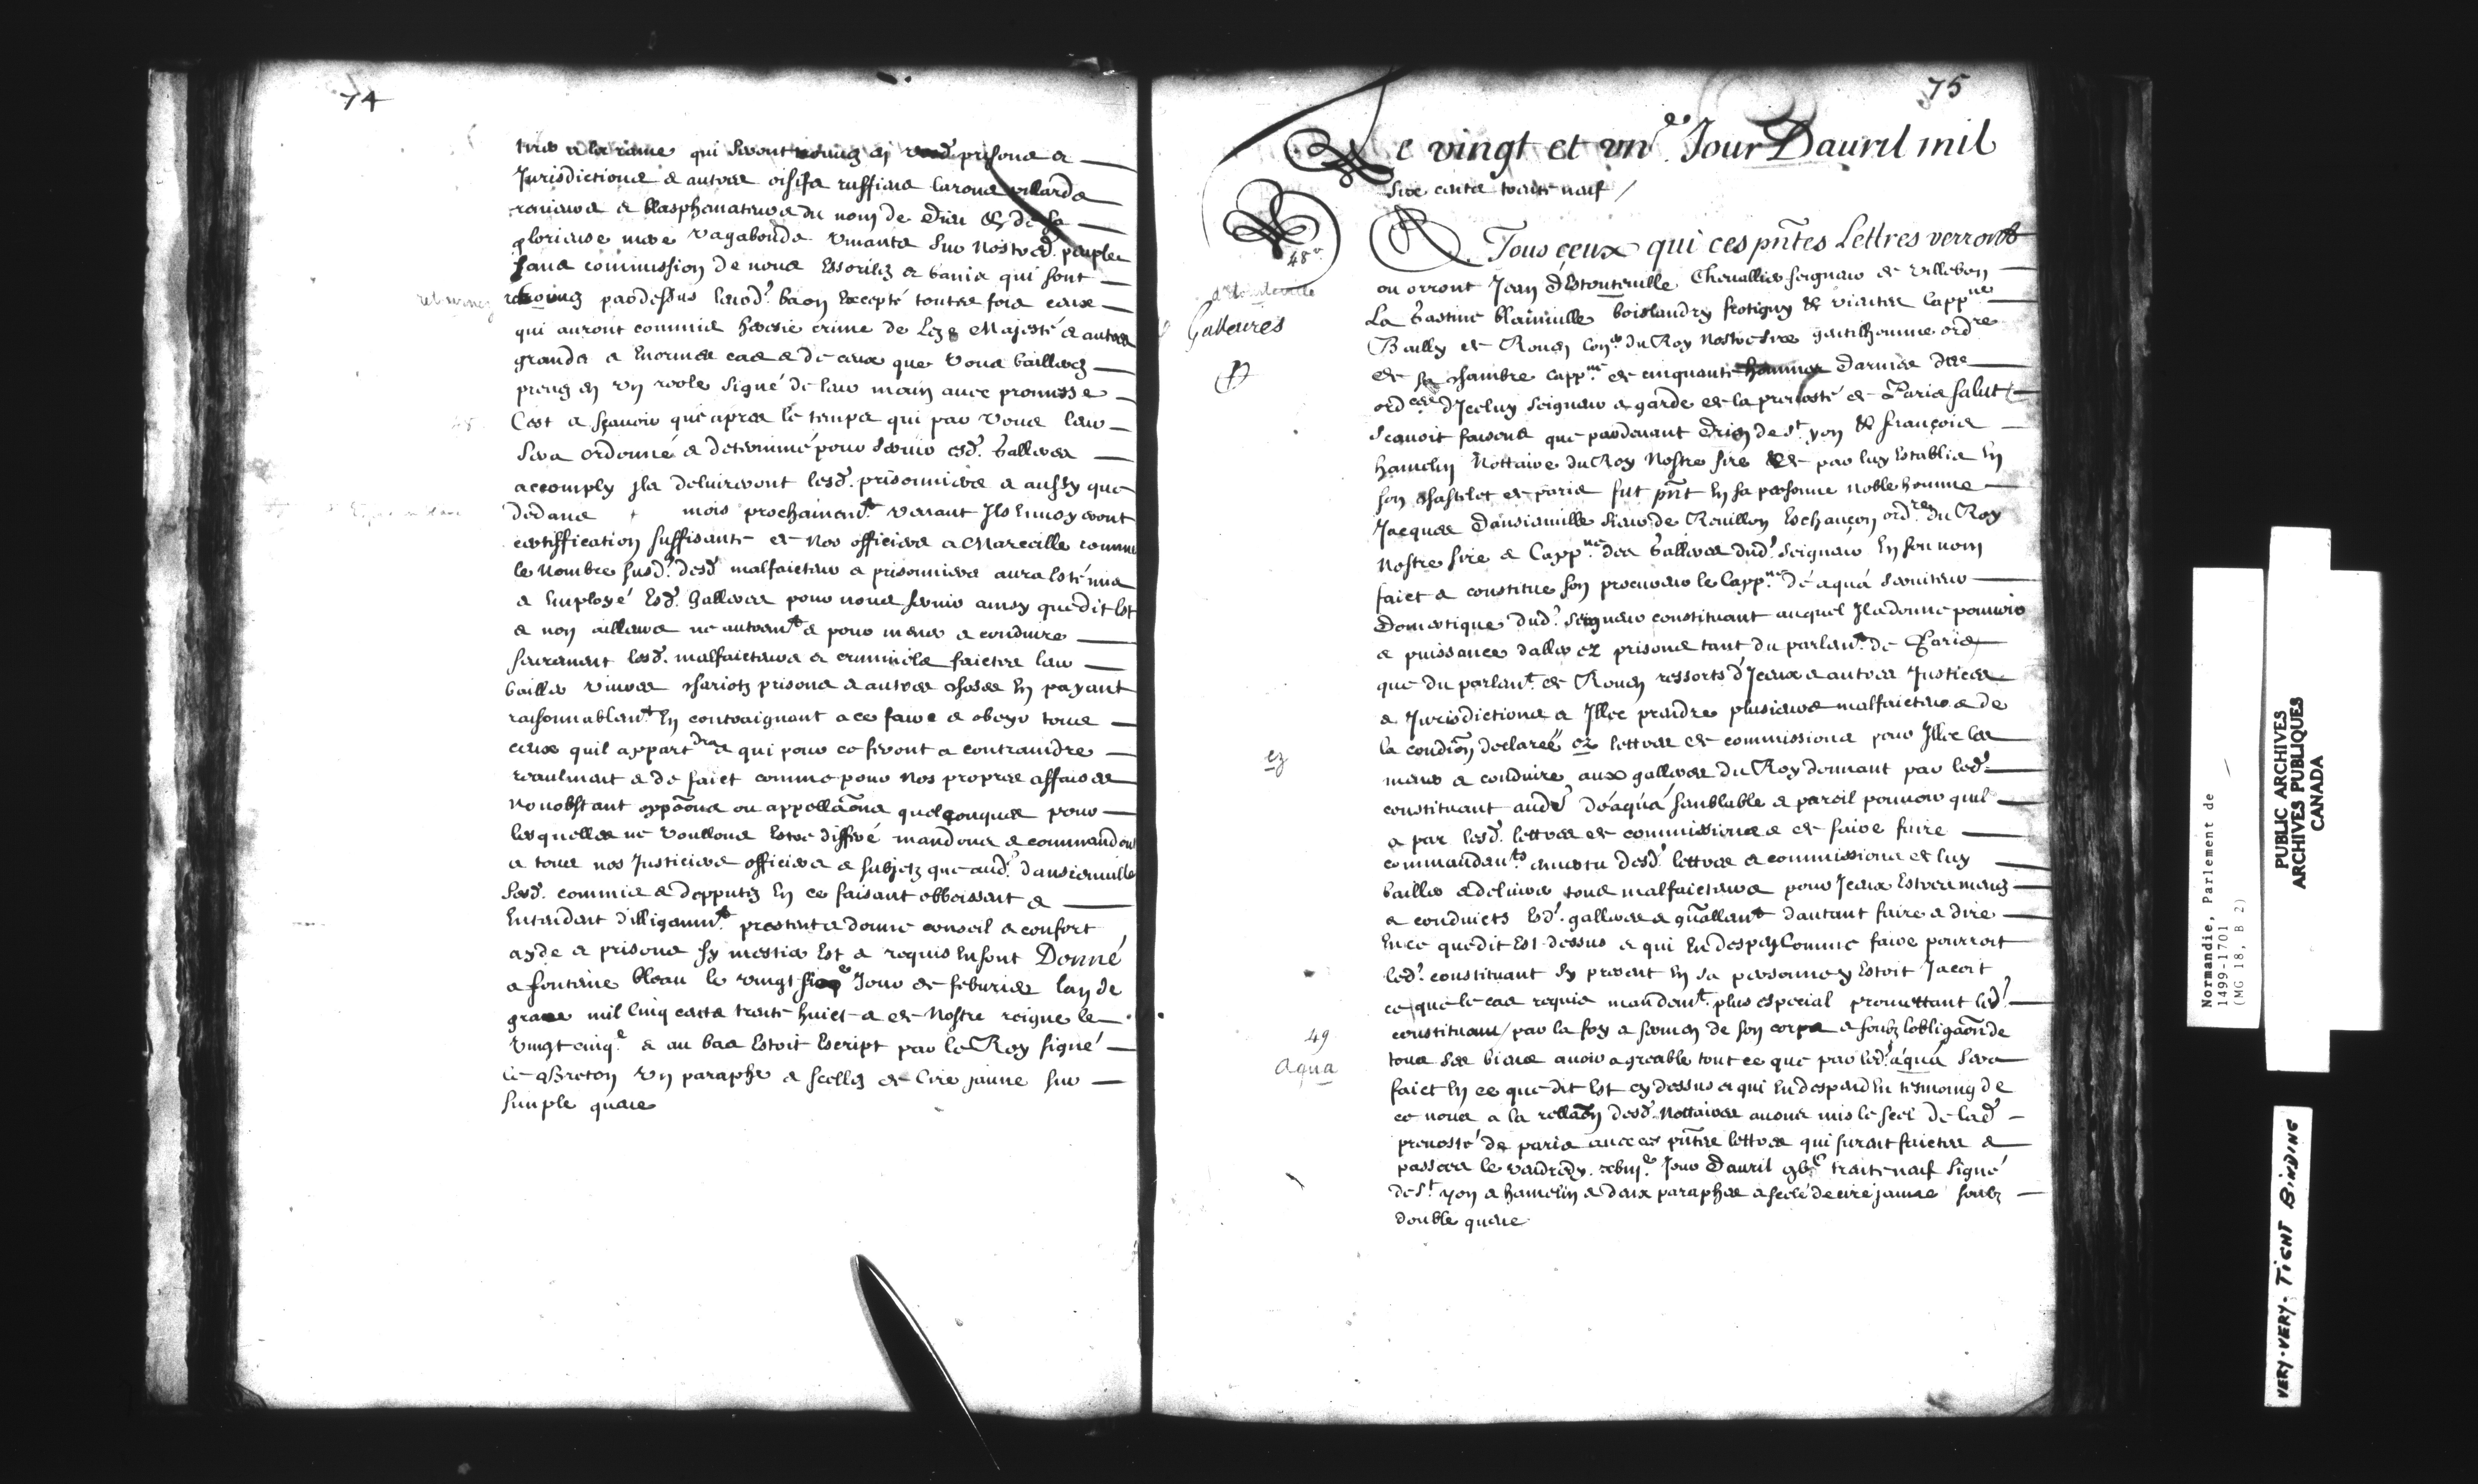 74
tirer a la rame qui seront trouvez es prisons et
Jurisdictions et autres oisifs ruffiens larons pillards
renieurs et blasphemateurs du nom de Dieu et de sa
glorieuse mere vagabonds vivants sur nostred. peuple
sans commission de nous essorilez et banis qui sont
retournez pardessus leurd. ban excepté touttes fois ceux
qui auront commis heresie crime de Leze Majesté et autres
grands et Enormes cas et de ceux que vous bailleres
prenez en un roole signé de leur main avec promesse
Cest a sçavoir que apres le temps qui par vous leur
sera ordonné et determiné pour servir esd. Galleres
accomply ils deliureront lesd. prisonniers et aussy que
dedans mois prochainemt. venant Ils Enuoyeront
certiffication suffisante de nos officiers a Marceille comme
le Nombre susd. desd. malfaicteurs et prisonniers aura Esté mis
et Employé Esd. Galleres pour nous servir ainsy que dit Est
et non ailleurs ne autremt. et pour mener et conduire
seurement lesd. malfaicteurs et criminels faictes leur
bailler vivres chariotz prisons et autres choses En payant
raisonnablemt. En contraignant a ce faire et obeyr tous
ceux quil appartdra. et qui pour ce seront a contraindre
reaulment et de faict comme pour nos propres affaires
Nonobstant oppõons ou appellãons quelconques pour
lesquelles ne voullons Estre differé mandons et commandons
a tous nos Justiciers officiers et subjetz que aud. dansienuille
sesd. commis et depputez En ce faisant obboissent et
Entendent dilligemmt. prestent et donne conseil et confort
ayde et prisons sy mestier Est et requis En sont Donné
a fontaine bleau le vingt Jour de feburier lan de
grace mil Cinq cents trente huict et de Nostre reigne le
vingt cinqe. et au bas Estoit Escript par le Roy signé
Le Breton Un paraphe et scellez de Cire jaune sur
simple queue
75
Le vingt et une. Jour Dauril mil
Cinq cents trente neuf /
48e.
A Tous ceux qui ces pñtes Lettres verront
ou orront Jean d'Estouteuille Cheuallier seigneur de Villebon
destouteuille
La Gastine blainuille boislandry fretigny et vientes Cappne.
Galleures
Bailly de Rouen Conser. du Roy Nostre sire gentilhomme ordre.
de sa chambre cappne. de cinquante hommes Darmes des
ordces. d'Iceluy seigneur et garde de la preuosté de Paris salut
scauoir faisons que pardeuant Drien de St. yon et françois
hamelin Nottaires du Roy Nostre sire de par luy Establis En
son chastelet de paris fut pñt En sa personne noble homme
Jacques Dansienuille sieur de Reuillon Eschançon ordre. du Roy
Nostre sire et Cappne. des Galleres dud. seigneur En son nom
faict et constitue son procureur le Cappne. de aqua seruiteur
Domestique dud. seigneur constituant auquel Il a donne pouuoir
et puissance daller ez prisons tant du parlemt. de Paris
que du parlemt. de Rouen ressorts d'Iceux et autres Justices
et Jurisdictions et Illec prendre plusieurs malfaicteurs et de
la condiõn declareé ez lettres de commissions pour Illec les
ez
mener et conduire aux galleres du Roy donnant par led.
constituant aud. de aqua semblable et pareil pouuoir quil
a par lesd. lettres de commissions et de faire faire
commandemts. en vertu desd. lettres et commissions de luy
bailler et deliurer tous malfaicteurs pour Iceux Estre menez
et conduicts Esd. galleres et gñallemt. dautant faire et dire
En ce que dit Est dessus et qui En despend Comme faire pourroit
led. constituant sy present En sa personne y Estoit Jacoit
ce que le cas requis mandemt. plus especial promettant led.
constituant par la foy et sermen de son corps et soubz lobligãon de
49
tous ses biens auoir agreable tout ce que par led. aqua sera
aqua
faict En ce que dit Est cy dessus et qui En despend En tesmoing de
ce nous a la rellaõn desd. Nottaires auons mis le scel de lad.
preuosté de paris a ces pñtes lettres qui furent faictes et
passees le vendredy jour Dauril trente neuf signé
de St. yon et hamelin et deux paraphes et scelé de cire jaune soubz
double queue
Normandie, Parlement de
1499-1701
(MG 18, B 2)
PUBLIC ARCHIVES
ARCHIVES PUBLIQUES
CANADA
VERY-VERY-TIGHT BINDING